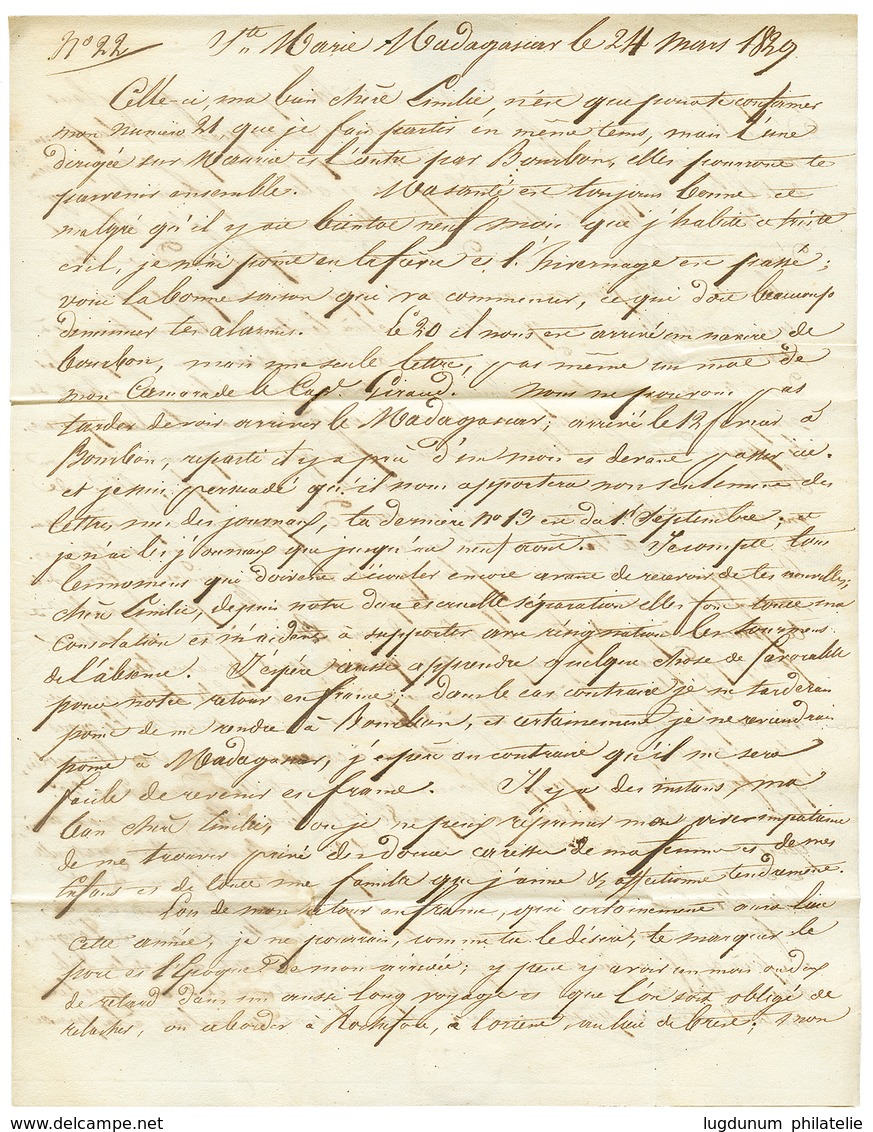 N° 22 Ste Marie Madagascar le 24 mars 1829
Celle-ci, ma bien chère Emilie, n'est que pour te confirmer
mon numéro 21, que je fais partir en même tems, mais l'une
dirigée sur Maurice et l'autre par Bourbon, elles pourront te
parvenir ensemble. Ma santé est toujours bonne et
malgré qu'il y ait bientôt neuf mois que j'habite ce triste
exil, je n'ai point eu la fièvre et l'hivernage est passé;
voici la bonne saison qui va commencer, ce qui doit beaucoup
diminuer tes alarmes. Le 20 il nous est arrivé un navire de
Bourbon, mais une seule lettre, pas même un mot de
mon Camarade le Cape. Giraud. Nous ne pouvons pas
tarder de voir arriver le Madagascar; arrivé le 12 fevrier à
Bourbon, reparti il y a près d'un mois et devant passer ici.
et je suis persuadé qu'il nous apportera non seulement des
lettres mais des journaux, ta dernière no 13 est du 1er Septembre. et
je n'ai lu de journaux que jusqu'au neuf août. Je compte tous
les momens qui doivent s'écouler encore avant de recevoir de tes nouvelles;
chère Emilie, depuis notre dure et cruelle séparation elles font toute ma
Consolation et m'aident à supporter avec résignation les tourmens
de l'absence. J'espère aussi apprendre quelque chose de favorable
pour notre retour en france; dans le cas contraire je ne tarderai
point de me rendre à Bourbon, et certainement je ne reviendrai
point à Madagascar, j'espère au contraire qu'il me sera
facile de revenir en france. Il y a des instans, ma
bien chère Emilie, où je ne peux réprimer mon impatience
de me trouver privé des douces caresses de ma femme et de mes
Enfans et de toute une famille que j'aime & affectionne tendrement.
Lors de mon retour en france, qui certainement aura lieu
cette année, je ne pourrai, comme tu le désires, te marquer le
port et l'Epoque de mon arrivée; il peut y avoir un mois ou deux
de retard dans un aussi long voyage et que l'on soit obligé de
relâcher, ou aborder à Rochefort, à lorient, au lieu de brest; mon
© www.delcampe.net
lugdunum philatelie